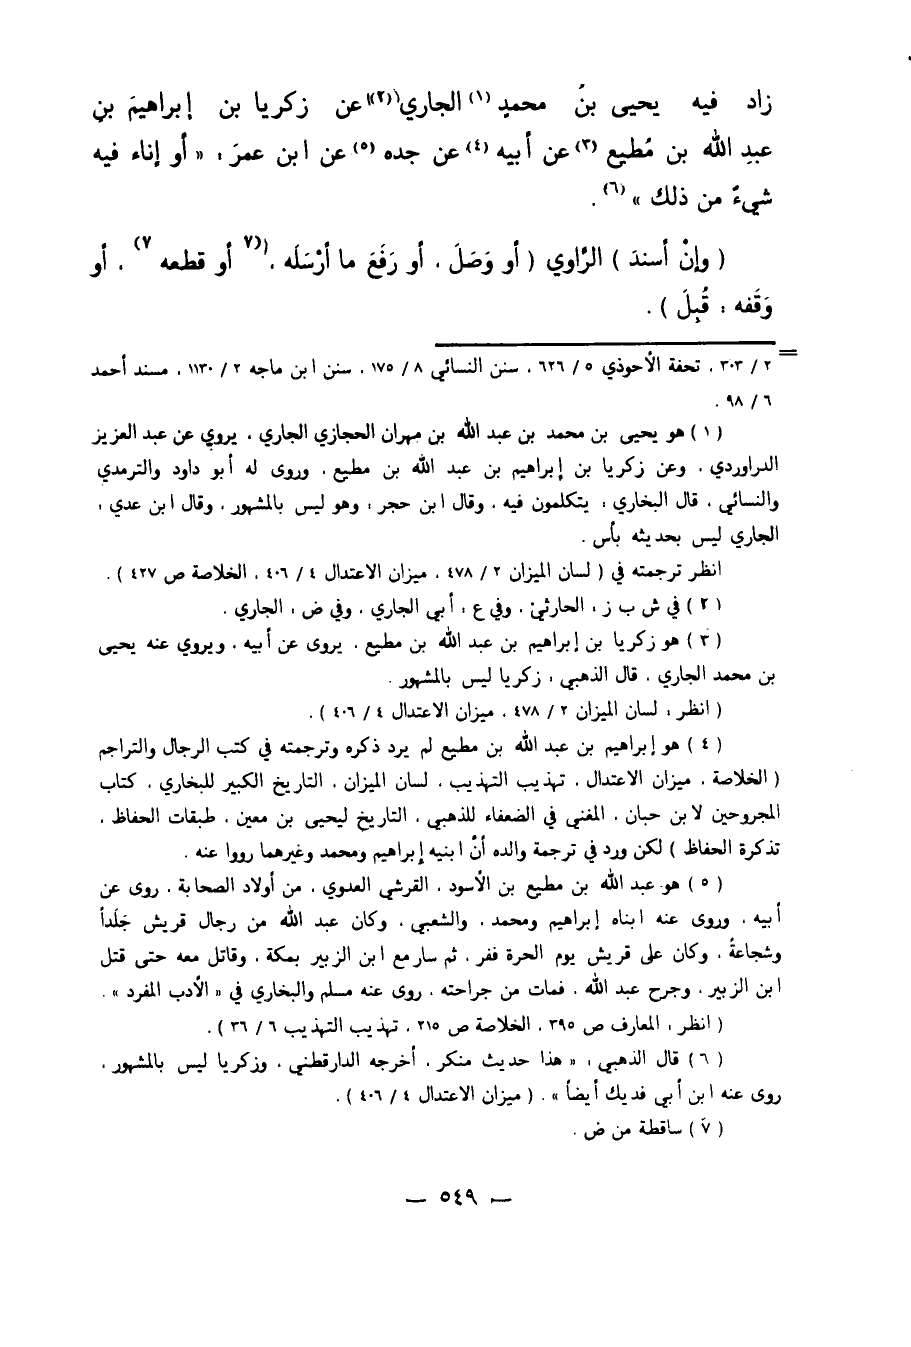 زاد فيه يحيى بنُ محمدٍ (١) الجاري (٢) عن زكريا بن إبراهيمَ بنِ
عبدِ الله بن مُطيع (٣) عن أبيه (٤) عن جده (٥) عن ابن عمرَ : « أو إناء فيه
شيءٌ من ذلك » (٦) .
( وإنْ أسندَ ) الرّاوي ( أو وَصَلَ ، أو رَفَعَ ما أرْسَلَه ، (٧ أو قطعه ٧) ، أو
وَقَفه : قُبِلَ ) .
= ٢ / ٣٠٣ ، تحفة الأحوذي ٥ / ٦٢٦ ، سنن النسائي ٨ / ١٧٥ ، سنن ابن ماجه ٢ / ١١٣٠ ، مسند أحمد
٦ / ٩٨ .
( ١ ) هو يحيى بن محمد بن عبد الله بن مهران الحجازي الجاري ، يروي عن عبد العزيز
الدراوردي ، وعن زكريا بن إبراهيم بن عبد الله بن مطيع ، وروى له أبو داود والترمدي
والنسائي ، قال البخاري : يتكلمون فيه ، وقال ابن حجر : وهو ليس بالمشهور ، وقال ابن عدي :
الجاري ليس بحديثه بأس .
انظر ترجمته في ( لسان الميزان ٢ / ٤٧٨ ، ميزان الاعتدال ٤ / ٤٠٦ ، الخلاصة ص ٤٢٧ ) .
( ٢ ) في ش ب ز : الحارثي ، وفي ع : أبي الجاري ، وفي ض : الجاري .
( ٣ ) هو زكريا بن إبراهيم بن عبد الله بن مطيع ، يروى عن أبيه ، ويروي عنه يحيى
بن محمد الجاري ، قال الذهبي : زكريا ليس بالمشهور .
( انظر : لسان الميزان ٢ / ٤٧٨ ، ميزان الاعتدال ٤ / ٤٠٦ ) .
( ٤ ) هو إبراهيم بن عبد الله بن مطيع لم يرد ذكره وترجمته في كتب الرجال والتراجم
( الخلاصة ، ميزان الاعتدال ، تهذيب التهذيب ، لسان الميزان ، التاريخ الكبير للبخاري ، كتاب
المجروحين لابن حبان ، المغني في الضعفاء للذهبي ، التاريخ ليحيى بن معين ، طبقات الحفاظ ،
تذكرة الحفاظ ) لكن ورد في ترجمة والده أنْ ابنيه إبراهيم ومحمد وغيرهما رووا عنه .
( ٥ ) هو عبد الله بن مطيع بن الأسود ، القرشي العدوي ، من أولاد الصحابة ، روى عن
أبيه ، وروى عنه ابناه إبراهيم ومحمد ، والشعبي ، وكان عبد الله من رجال قريش جَلَداً
وشجاعةً ، وكان على قريش يوم الحرة ففر ، ثم سار مع ابن الزبير بمكة ، وقاتل معه حتى قتل
ابن الزبير ، وجرح عبد الله ، فمات من جراحته ، روى عنه مسلم والبخاري في « الأدب المفرد » .
( انظر : المعارف ص ٣٩٥ ، الخلاصة ص ٢١٥ ، تهذيب التهذيب ٦ / ٣٦ ) .
( ٦ ) قال الذهبي : « هذا حديث منكر ، أخرجه الدارقطني ، وزكريا ليس بالمشهور ،
روى عنه ابن أبي فديك أيضاً » . ( ميزان الاعتدال ٤ / ٤٠٦ ) .
( ٧ ) ساقطة من ض .
— ٥٤٩ —